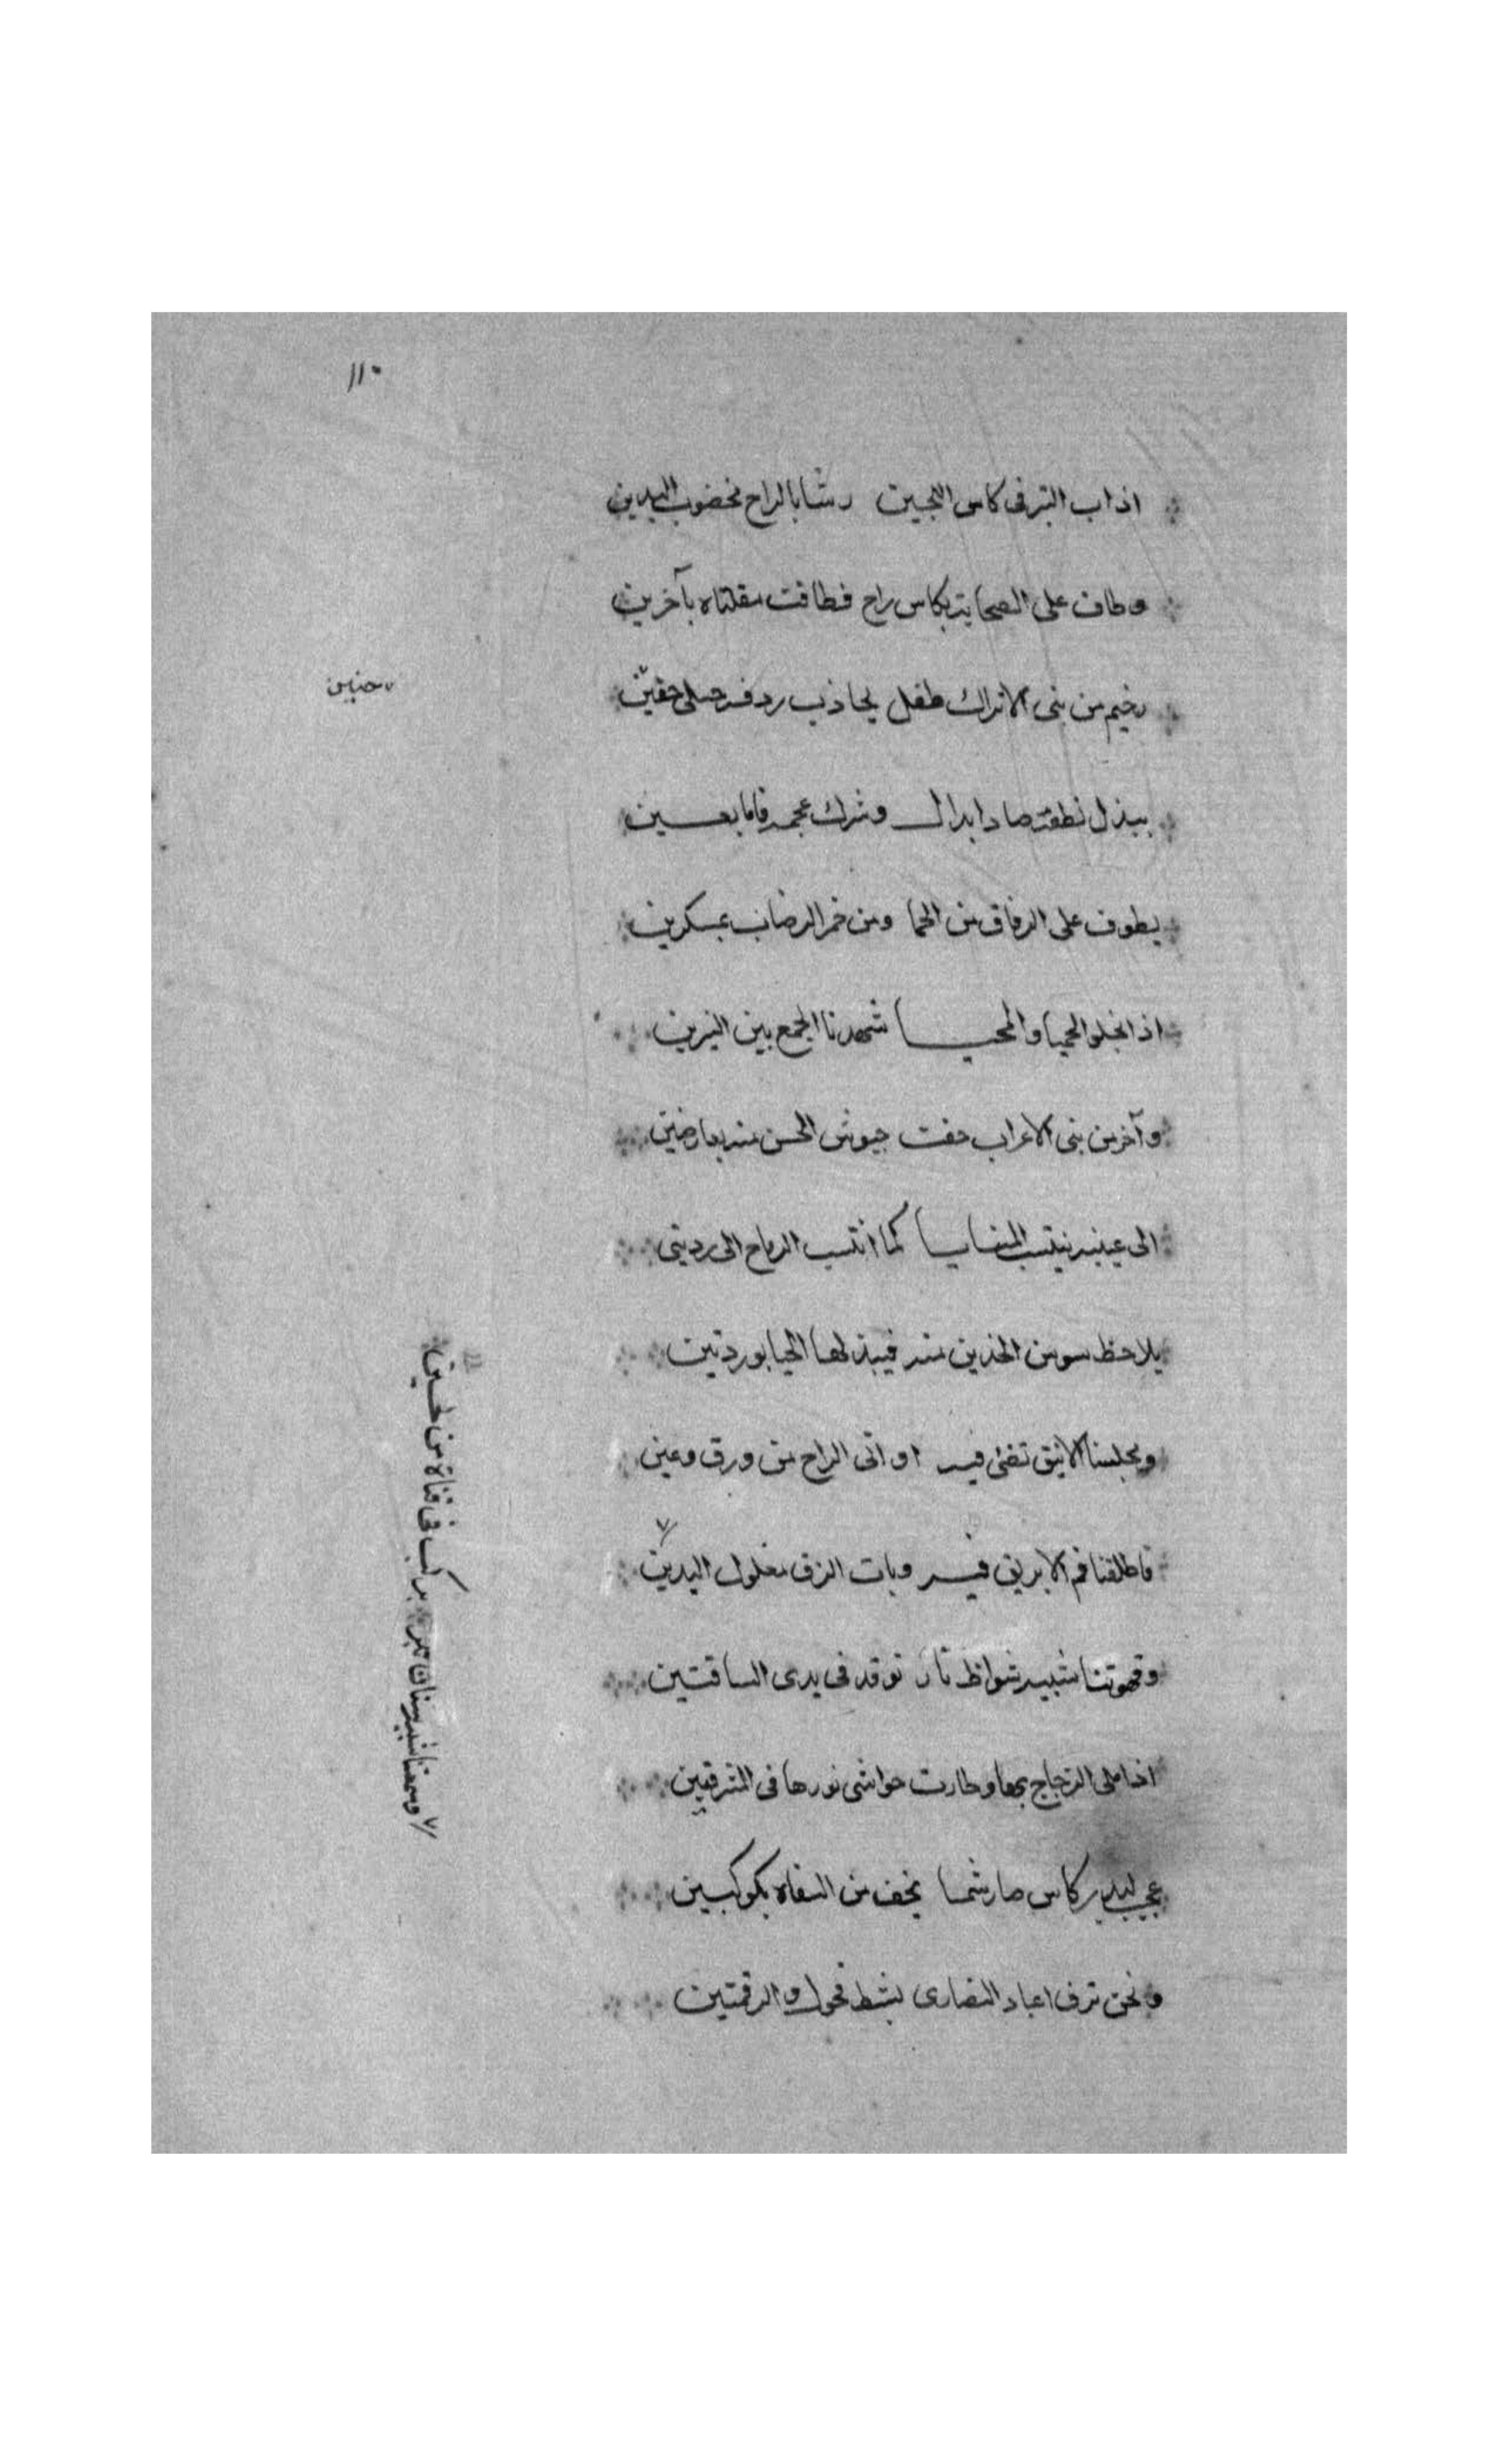 ١١٠
اذاب التبر فى كاس اللجين رشا بالراح مخضوب اليدين
وطاف على الصحابة بكاس راح فطافت مقلتاه بآخرين
رخيم من بنى الاتراك طفل يجاذب ردفه جبلى حنين
حنين
يبذل نطقه صادا بدال ويشرك عجمه قافا بغين
يطوف على الرفاق من الحميا ومن خمر الرضاب بمسكرين
اذا نجلو الحميا والمحيا شهدنا الجمع بين النيرين
وآخر من بنى الاعراب حفت جيوش الحسن منه بعارضين
الى عينيه ينتسب المنايا كما انتسب الرماح الى ردينى
يلاحظ سوسن الخدين منه فيبذلها الحيا بوردتين
ومجلسنا الانيق تضئ فيه اوانى الراح من ورق وعين
فاطلقنا فم الابريق فيه وبات الزق مغلول اليدين
وشمعتنا شبيه سنان تبر يركب فى قناة من لجين
وقهوتنا شبيه شواظ نار توقد فى يدى الساقيين
اذا ملى الزجاج بها وطارت حواشى نورها فى المشرقين
عجبت لبدر كاس صار شمسا يحف من السقاة بكوكبين
ونحن نزف اعياد النصارى بشط محول والرقمتين